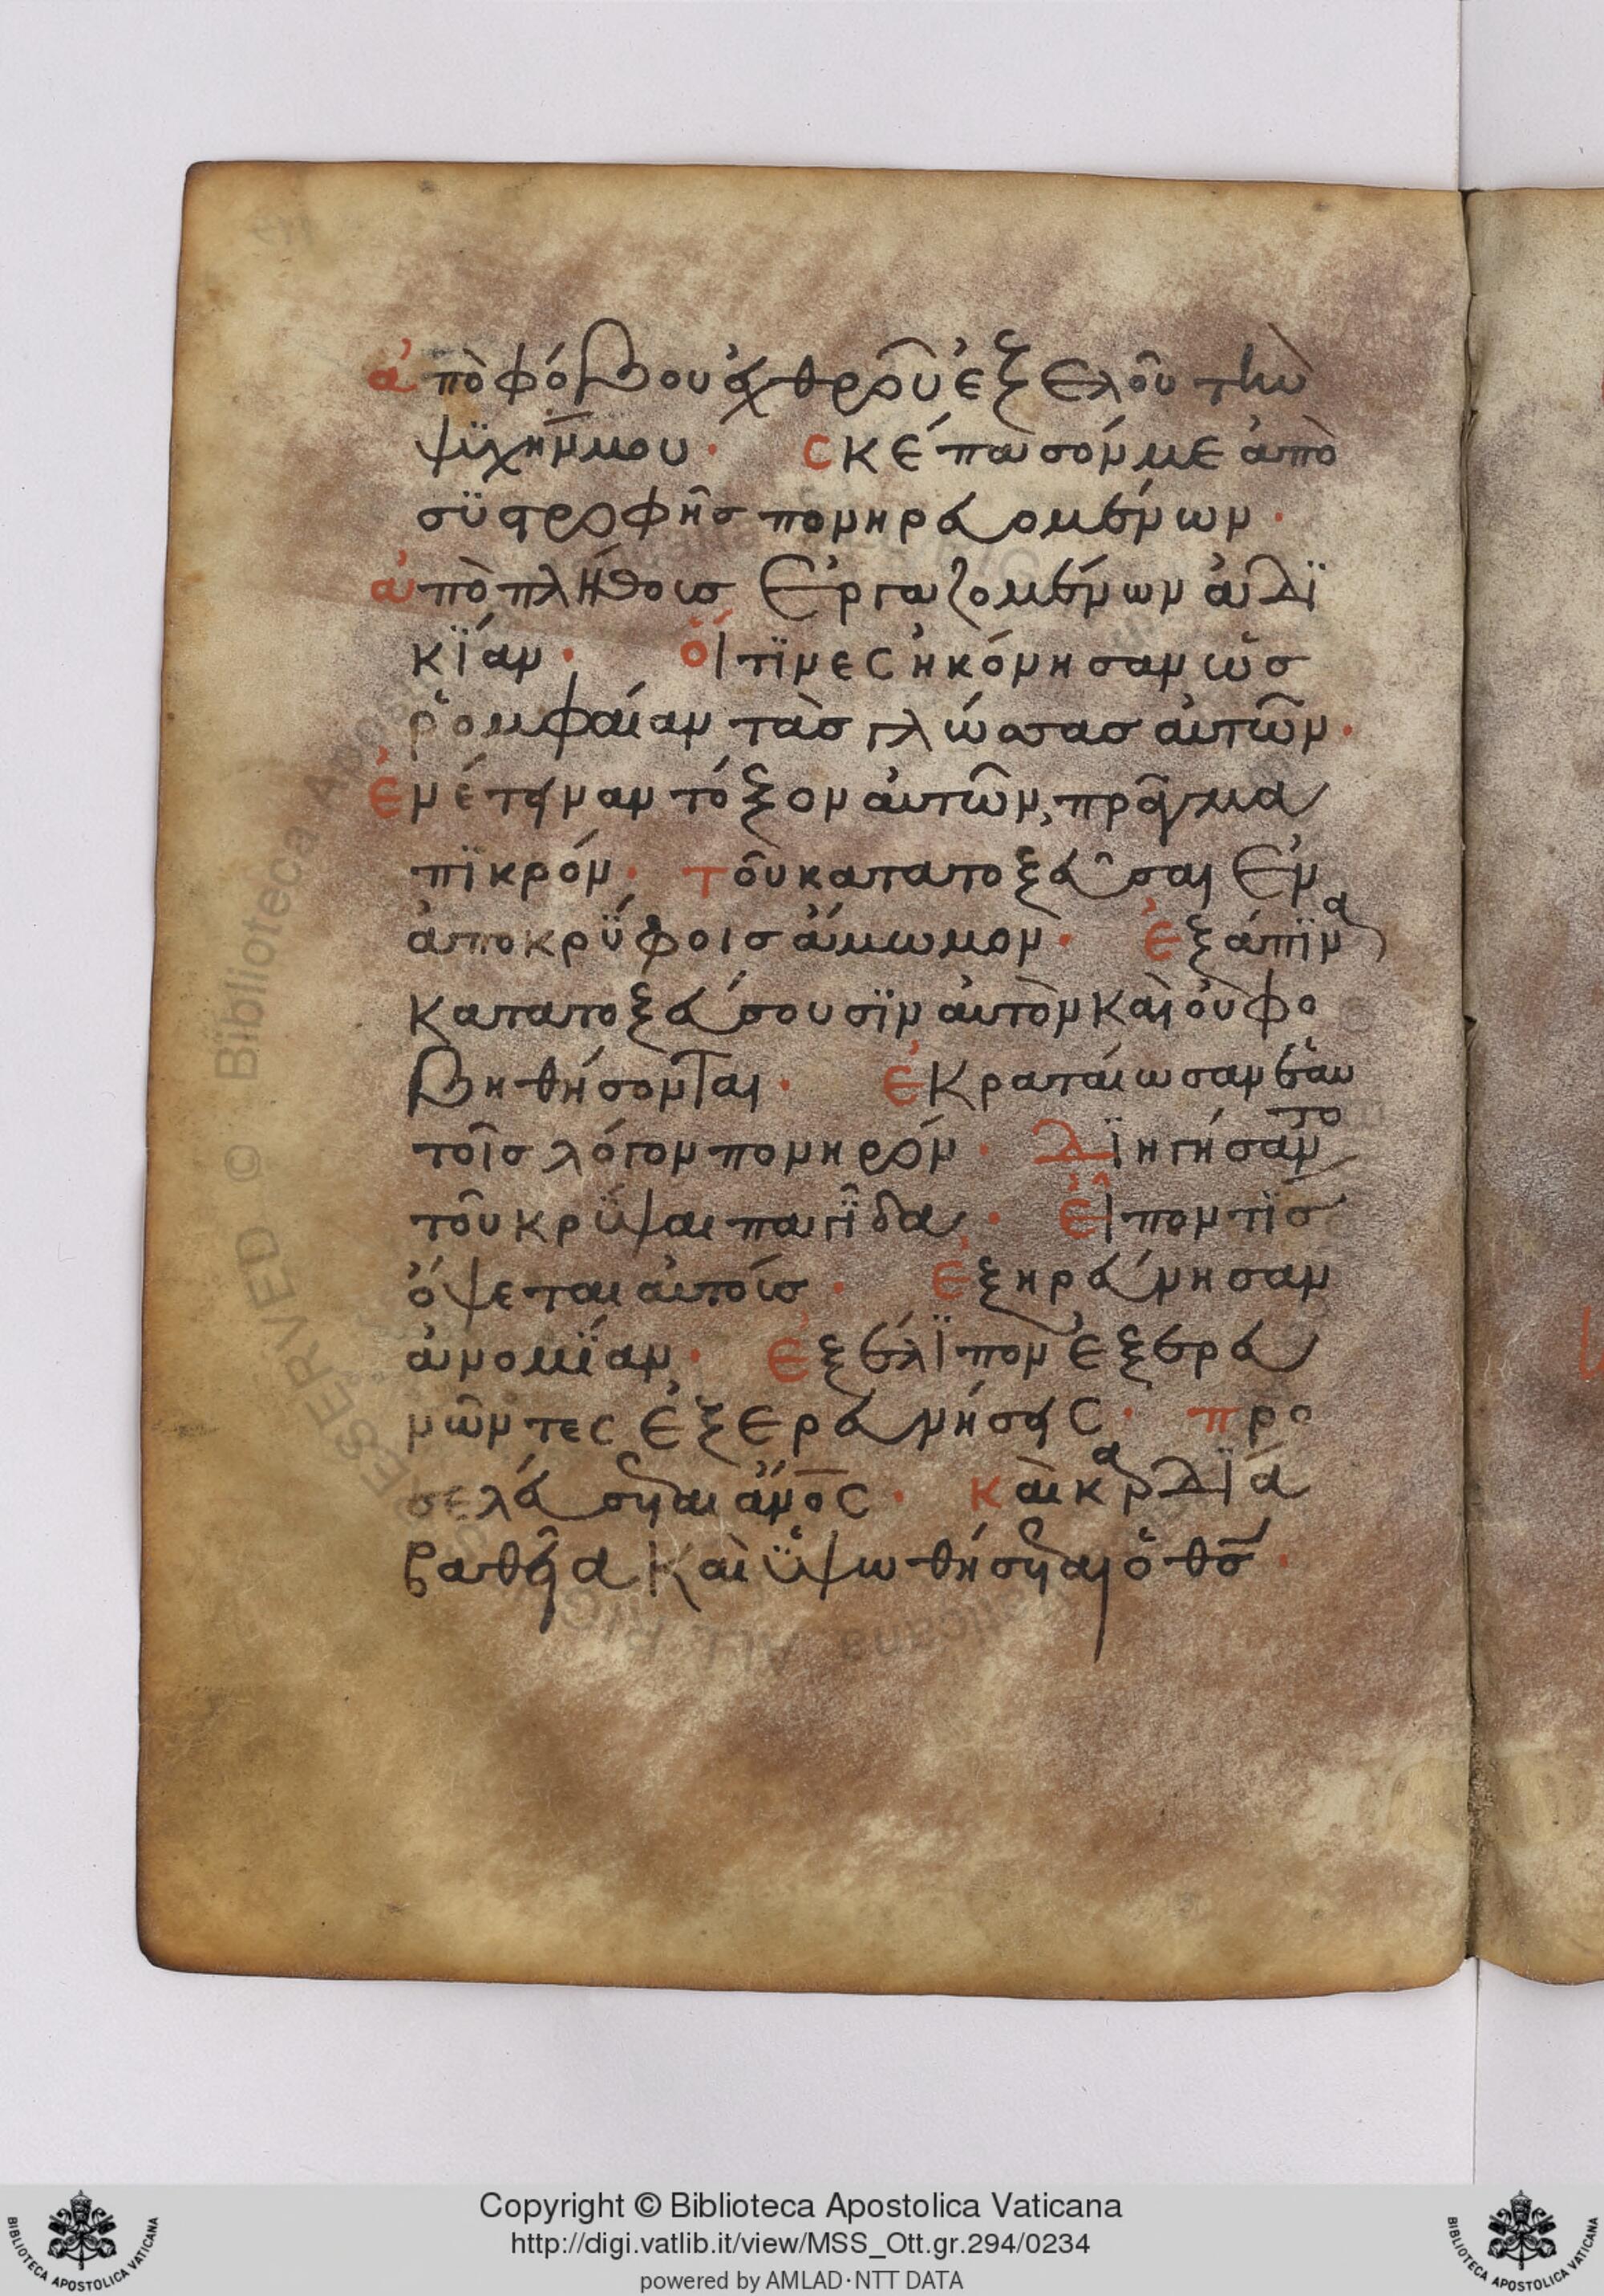 ἀπὸ φόβου ἐχθροῦ ἐξελοῦ τὴν
ψϊχήν μου· σκέπασόν με ἀπὸ
σϋστροφῆσ πονηρευομένων·
ἀπὸ πλήθουσ ἐργαζομένων ἀδϊ
κΐαν· οἵτϊνες ἠκόνησαν ὡσ
ῥομφαίαν τὰσ γλώσσασ αὐτῶν·
ἐνέτειναν τόξον αὐτῶν, πρᾶγμα
πϊκρόν· τοῦ κατατοξεῦσαι ἐν
ἀποκρΰφοισ ἄμωμον· ἐξάπϊνα
κατατοξεύσουσϊν αὐτὸν καὶ οὐ φο
βηθήσονται· ἐκραταίωσαν ἑαυ
τοῖσ λόγον πονηρόν· δϊηγήσαντο
τοῦ κρΰψαι παγΐδα· εἶπον τὶσ
ὄψεται αὐτούσ· ἐξηρεύνησαν
ἀνομΐαν· ἐξέλϊπον ἐξερευ
νῶντες ἐξερευνήσεις· προ
σελεύσεται ἄνος· καὶ καρδΐα
βαθεῖα καὶ ὑψωθήσεται ὁ θσ·
Copyright © Biblioteca Apostolica Vaticana
http://digi.vatlib.it/view/MSS_Ott.gr.294/0234
powered by AMLAD·NTT DATA
BIBLIOTECA APOSTOLICA VATICANA
BIBLIOTECA APOSTOLICA VATICANA